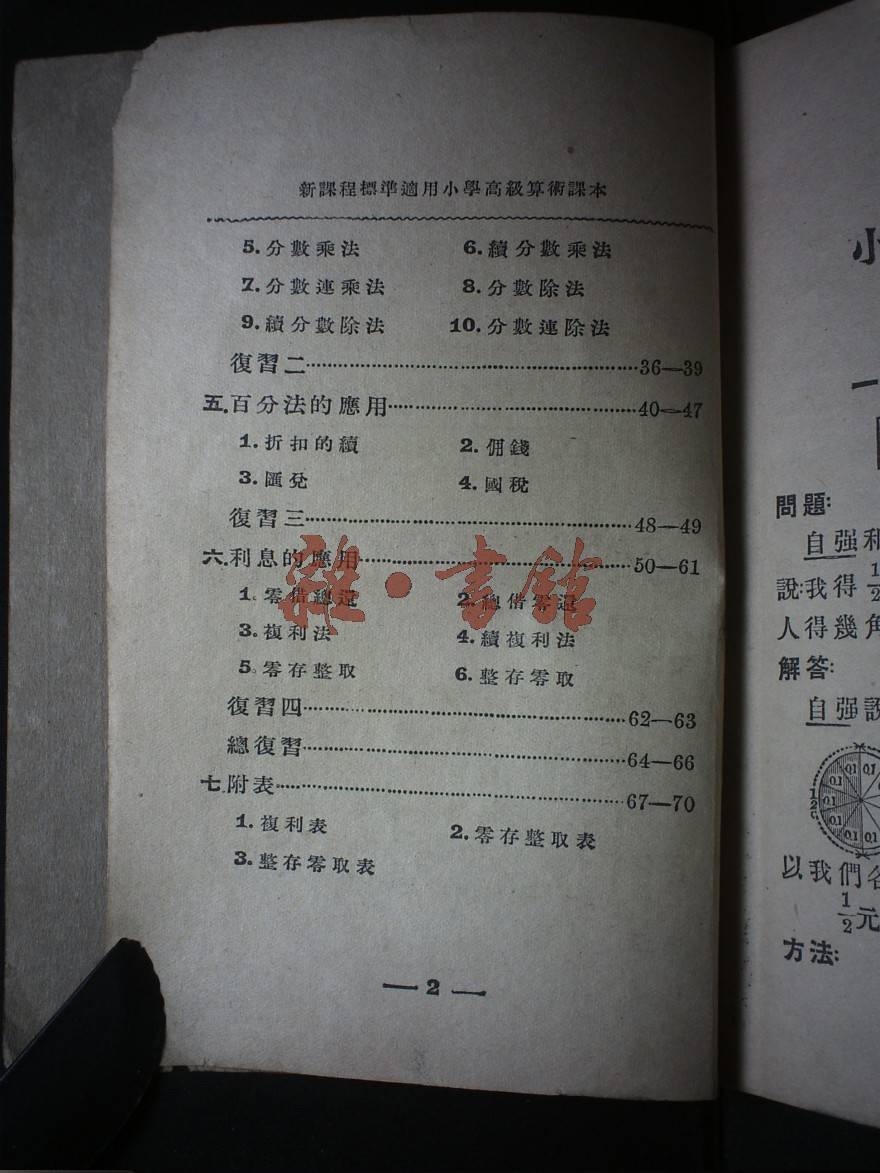 新課程標準適用小學高級算術課本
5. 分數乘法 6. 續分數乘法
7. 分數連乘法 8. 分數除法
9. 續分數除法 10. 分數連除法
復習二 36—39
五. 百分法的應用 40—47
1. 折扣的續 2. 佣錢
3. 匯兌 4. 國稅
復習三 48—49
六. 利息的應用 50—61
1. 零借總還 2. 總借零還
3. 複利法 4. 續複利法
5. 零存整取 6. 整存零取
復習四 62—63
總復習 64—66
七. 附表 67—70
1. 複利表 2. 零存整取表
3. 整存零取表
— 2 —
雜·書館
小
一
問題:
自强和
說:我得 1/2
人得幾角
解答:
自强說
0.1 0.1
0.1
0.1
0.1
0.1
0.1 0.1
以我們各
1/2元
方法: